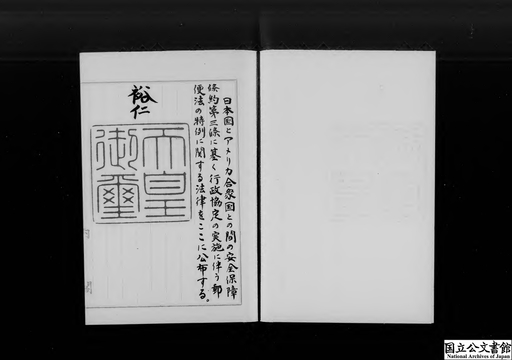 日本国とアメリカ合衆国との間の安全保障
條約第三條に基く行政協定の実施に伴う郵
便法の特例に関する法律をここに公布する。
裕仁
天皇
御璽
国立公文書館
National Archives of Japan